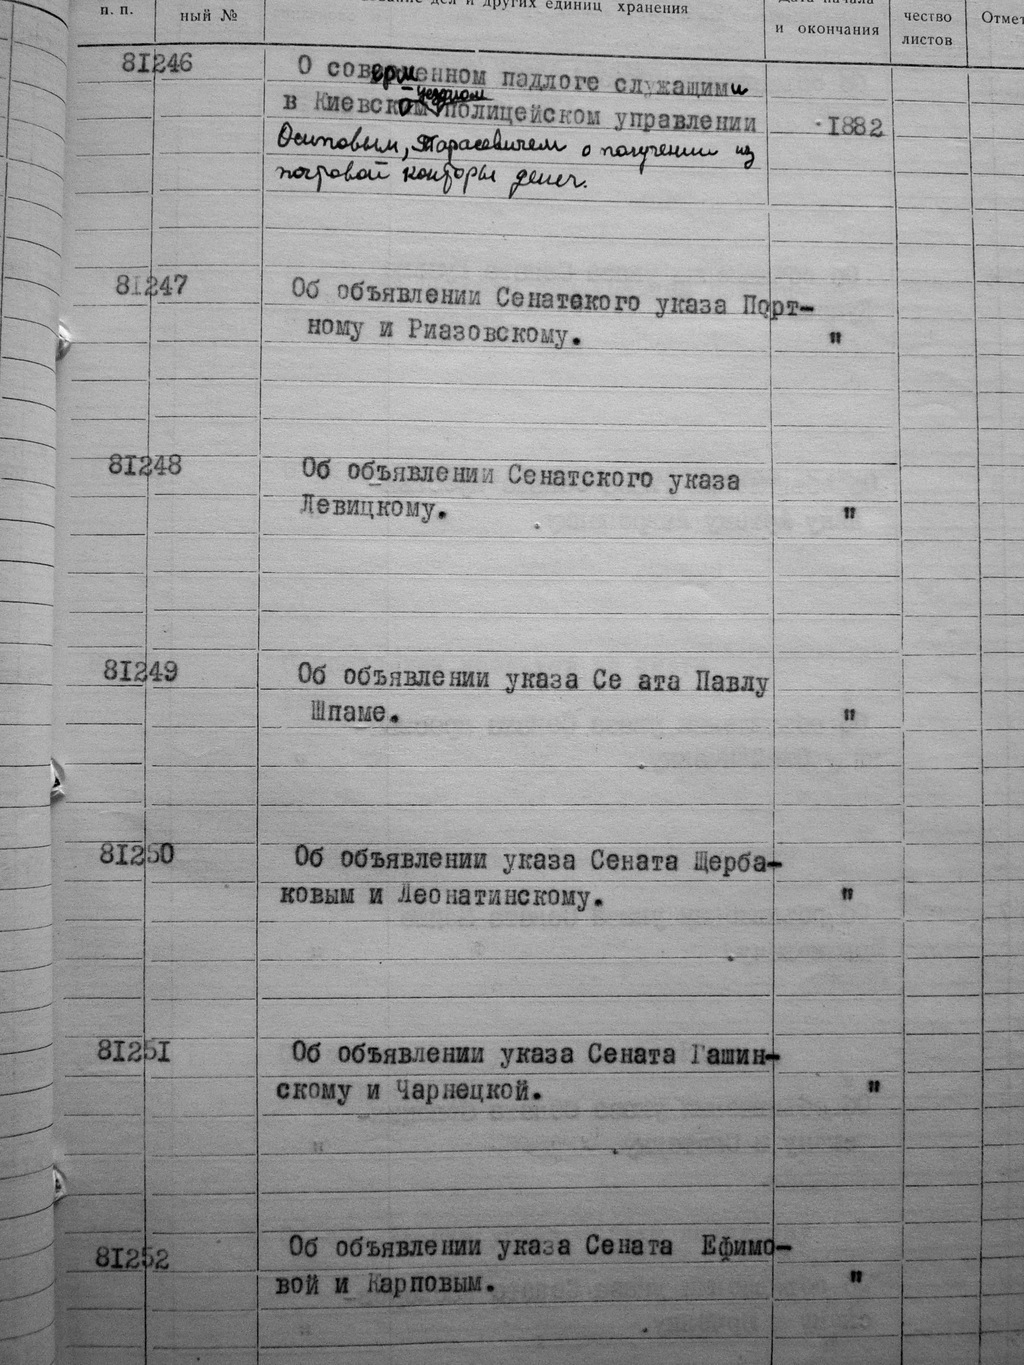 п. п.
ный №
дел и других единиц хранения
и окончания
чество
листов
Отмет
81246
О совершенном падлоге служащими
в Киевском уездном полицейском управлении
1882
Осиповым, Тарасевичем о получении из
почтовой конторы денег.
81247
Об объявлении Сенатского указа Порт-
ному и Риазовскому.
"
81248
Об объявлении Сенатского указа
Левицкому.
"
81249
Об объявлении указа Се ата Павлу
Шпаме.
"
81250
Об объявлении указа Сената Щерба-
ковым и Леонатинскому.
"
81251
Об объявлении указа Сената Гашин-
скому и Чарнецкой.
"
81252
Об объявлении указа Сената Ефимо-
вой и Карповым.
"